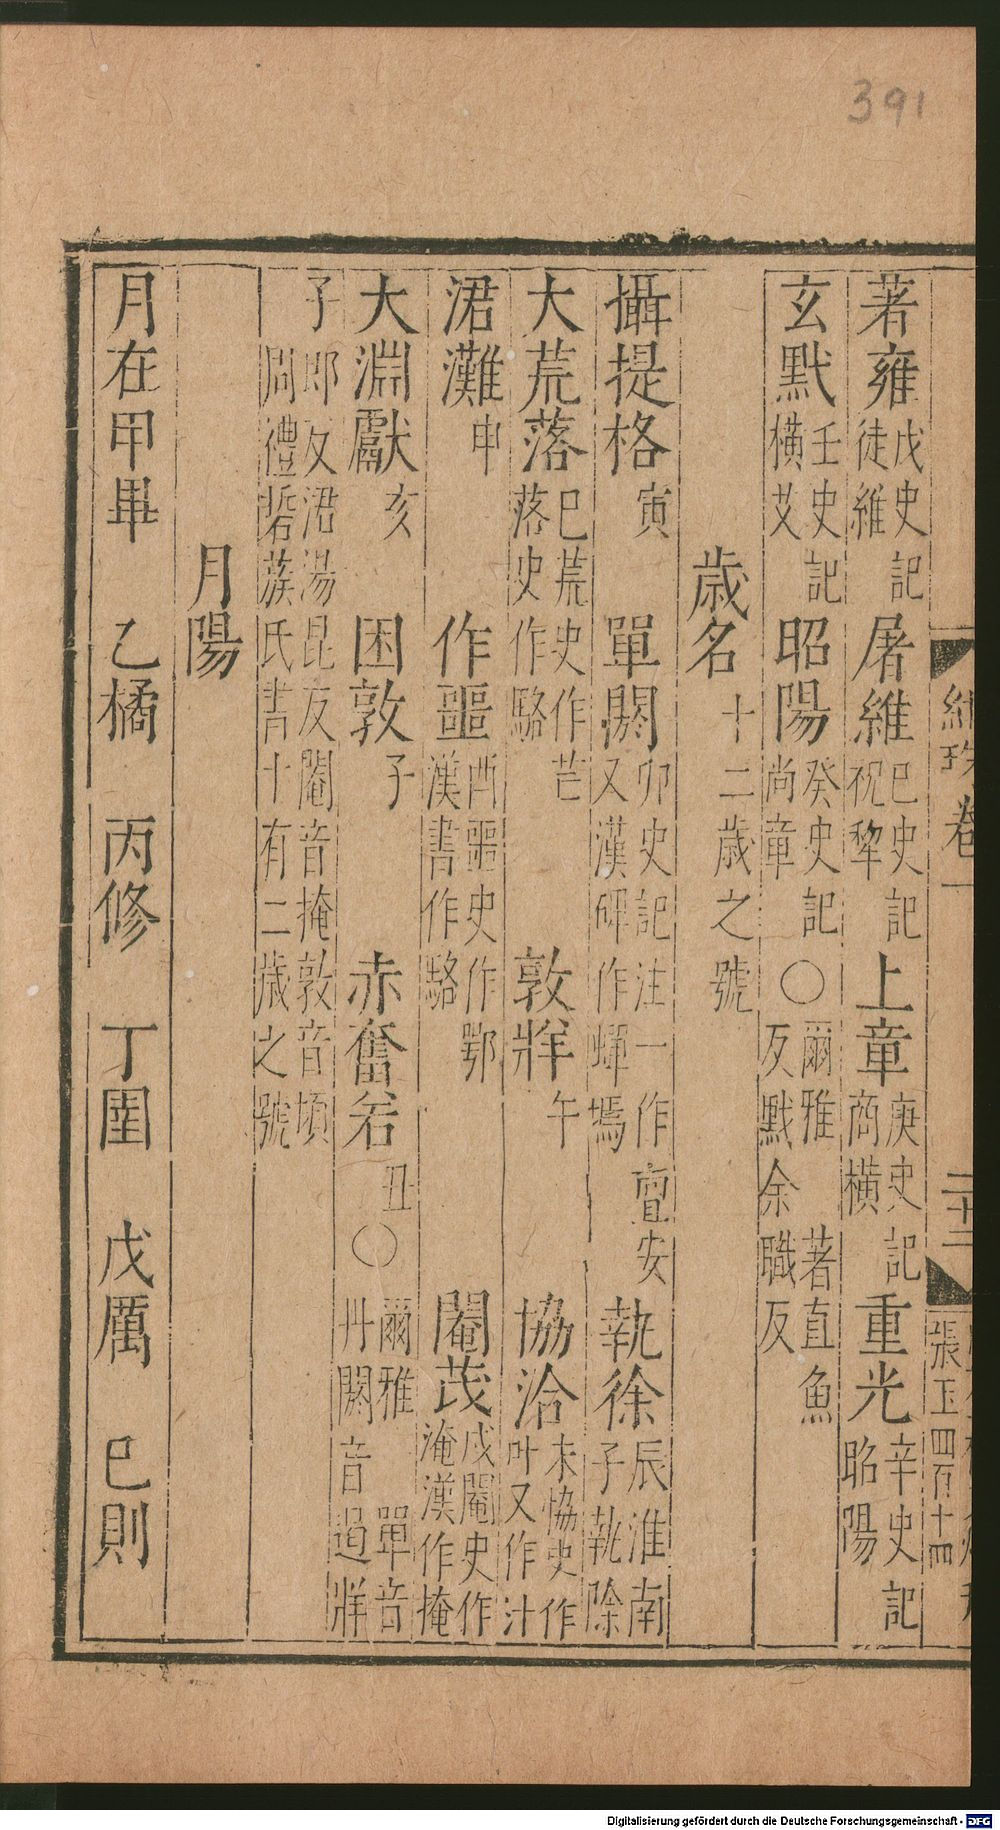 391
著雍戊史記徒維 屠維巳史記祝犂 上章庚史記商橫 重光辛史記昭陽
玄黓壬史記橫艾 昭陽癸史記尚章 〇爾雅 著直魚反黓余職反
歲名十二歲之號
攝提格寅 單閼卯史記注一作亶安又漢碑作蟬焉 執徐辰淮南子執除
大荒落巳荒史作芒落史作駱 敦牂午 協洽未協史作叶又作汁
涒灘申 作噩酉噩史作鄂漢書作駱 閹茂戌閹史作淹漢作掩
大淵獻亥 困敦子 赤奮若丑〇爾雅 單音丹閼音遏牂
子郎反涒湯昆反閹音掩敦音頓周禮硩蔟氏書十有二歲之號
月陽
月在甲畢 乙橘 丙修 丁圉 戊厲 巳則
卷一
二十二
張玉四百十四
Digitalisierung gefördert durch die Deutsche Forschungsgemeinschaft - DFG